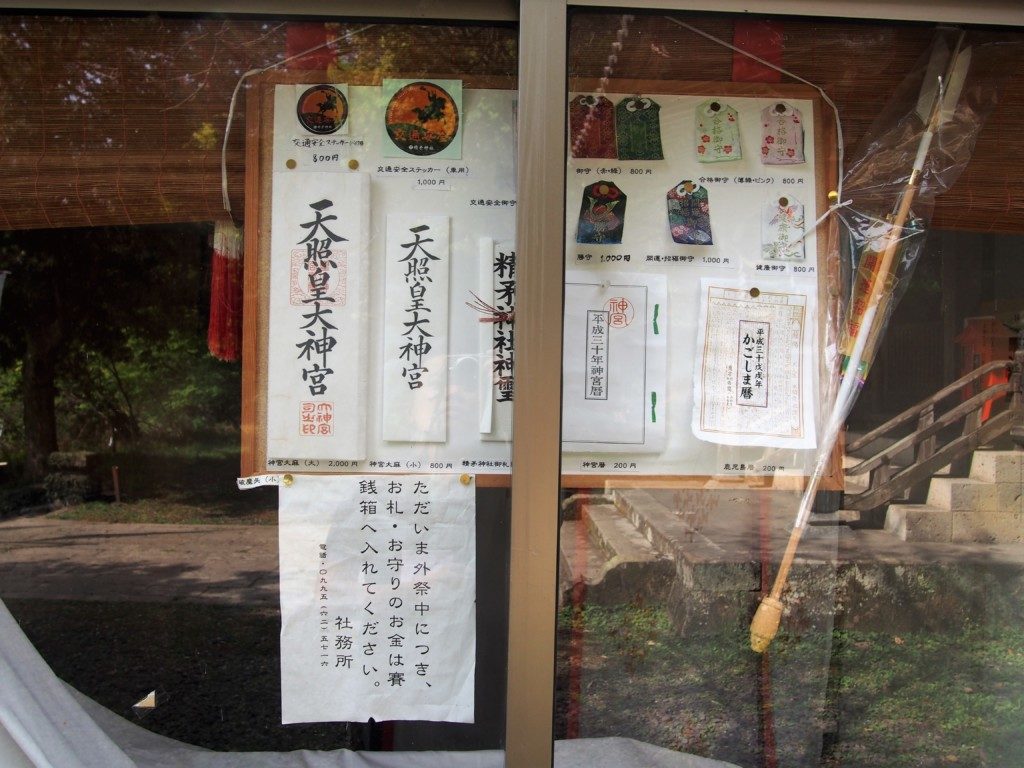 交通安全
交通安全ステッカー(小)
800円
交通安全ステッカー(車用)
1,000円
交通安全御守
天照皇大神宮
天照皇大神宮
精矛神社神璽
神宮大麻(大) 2,000円
神宮大麻(小) 800円
精矛神社御札
破魔矢(小)
御守(赤・緑) 800円
合格御守
合格御守
合格御守(薄緑・ピンク) 800円
勝守 1,000円
開運・招福御守 1,000円
健康御守 800円
神宮
平成三十年神宮暦
平成三十戊戌年
かごしま暦
神宮暦 200円
鹿児島暦 200円
ただいま外祭中につき、
お札・お守りのお金は賽
銭箱へ入れてください。
社務所
電話・〇九九五(六二)五七一六